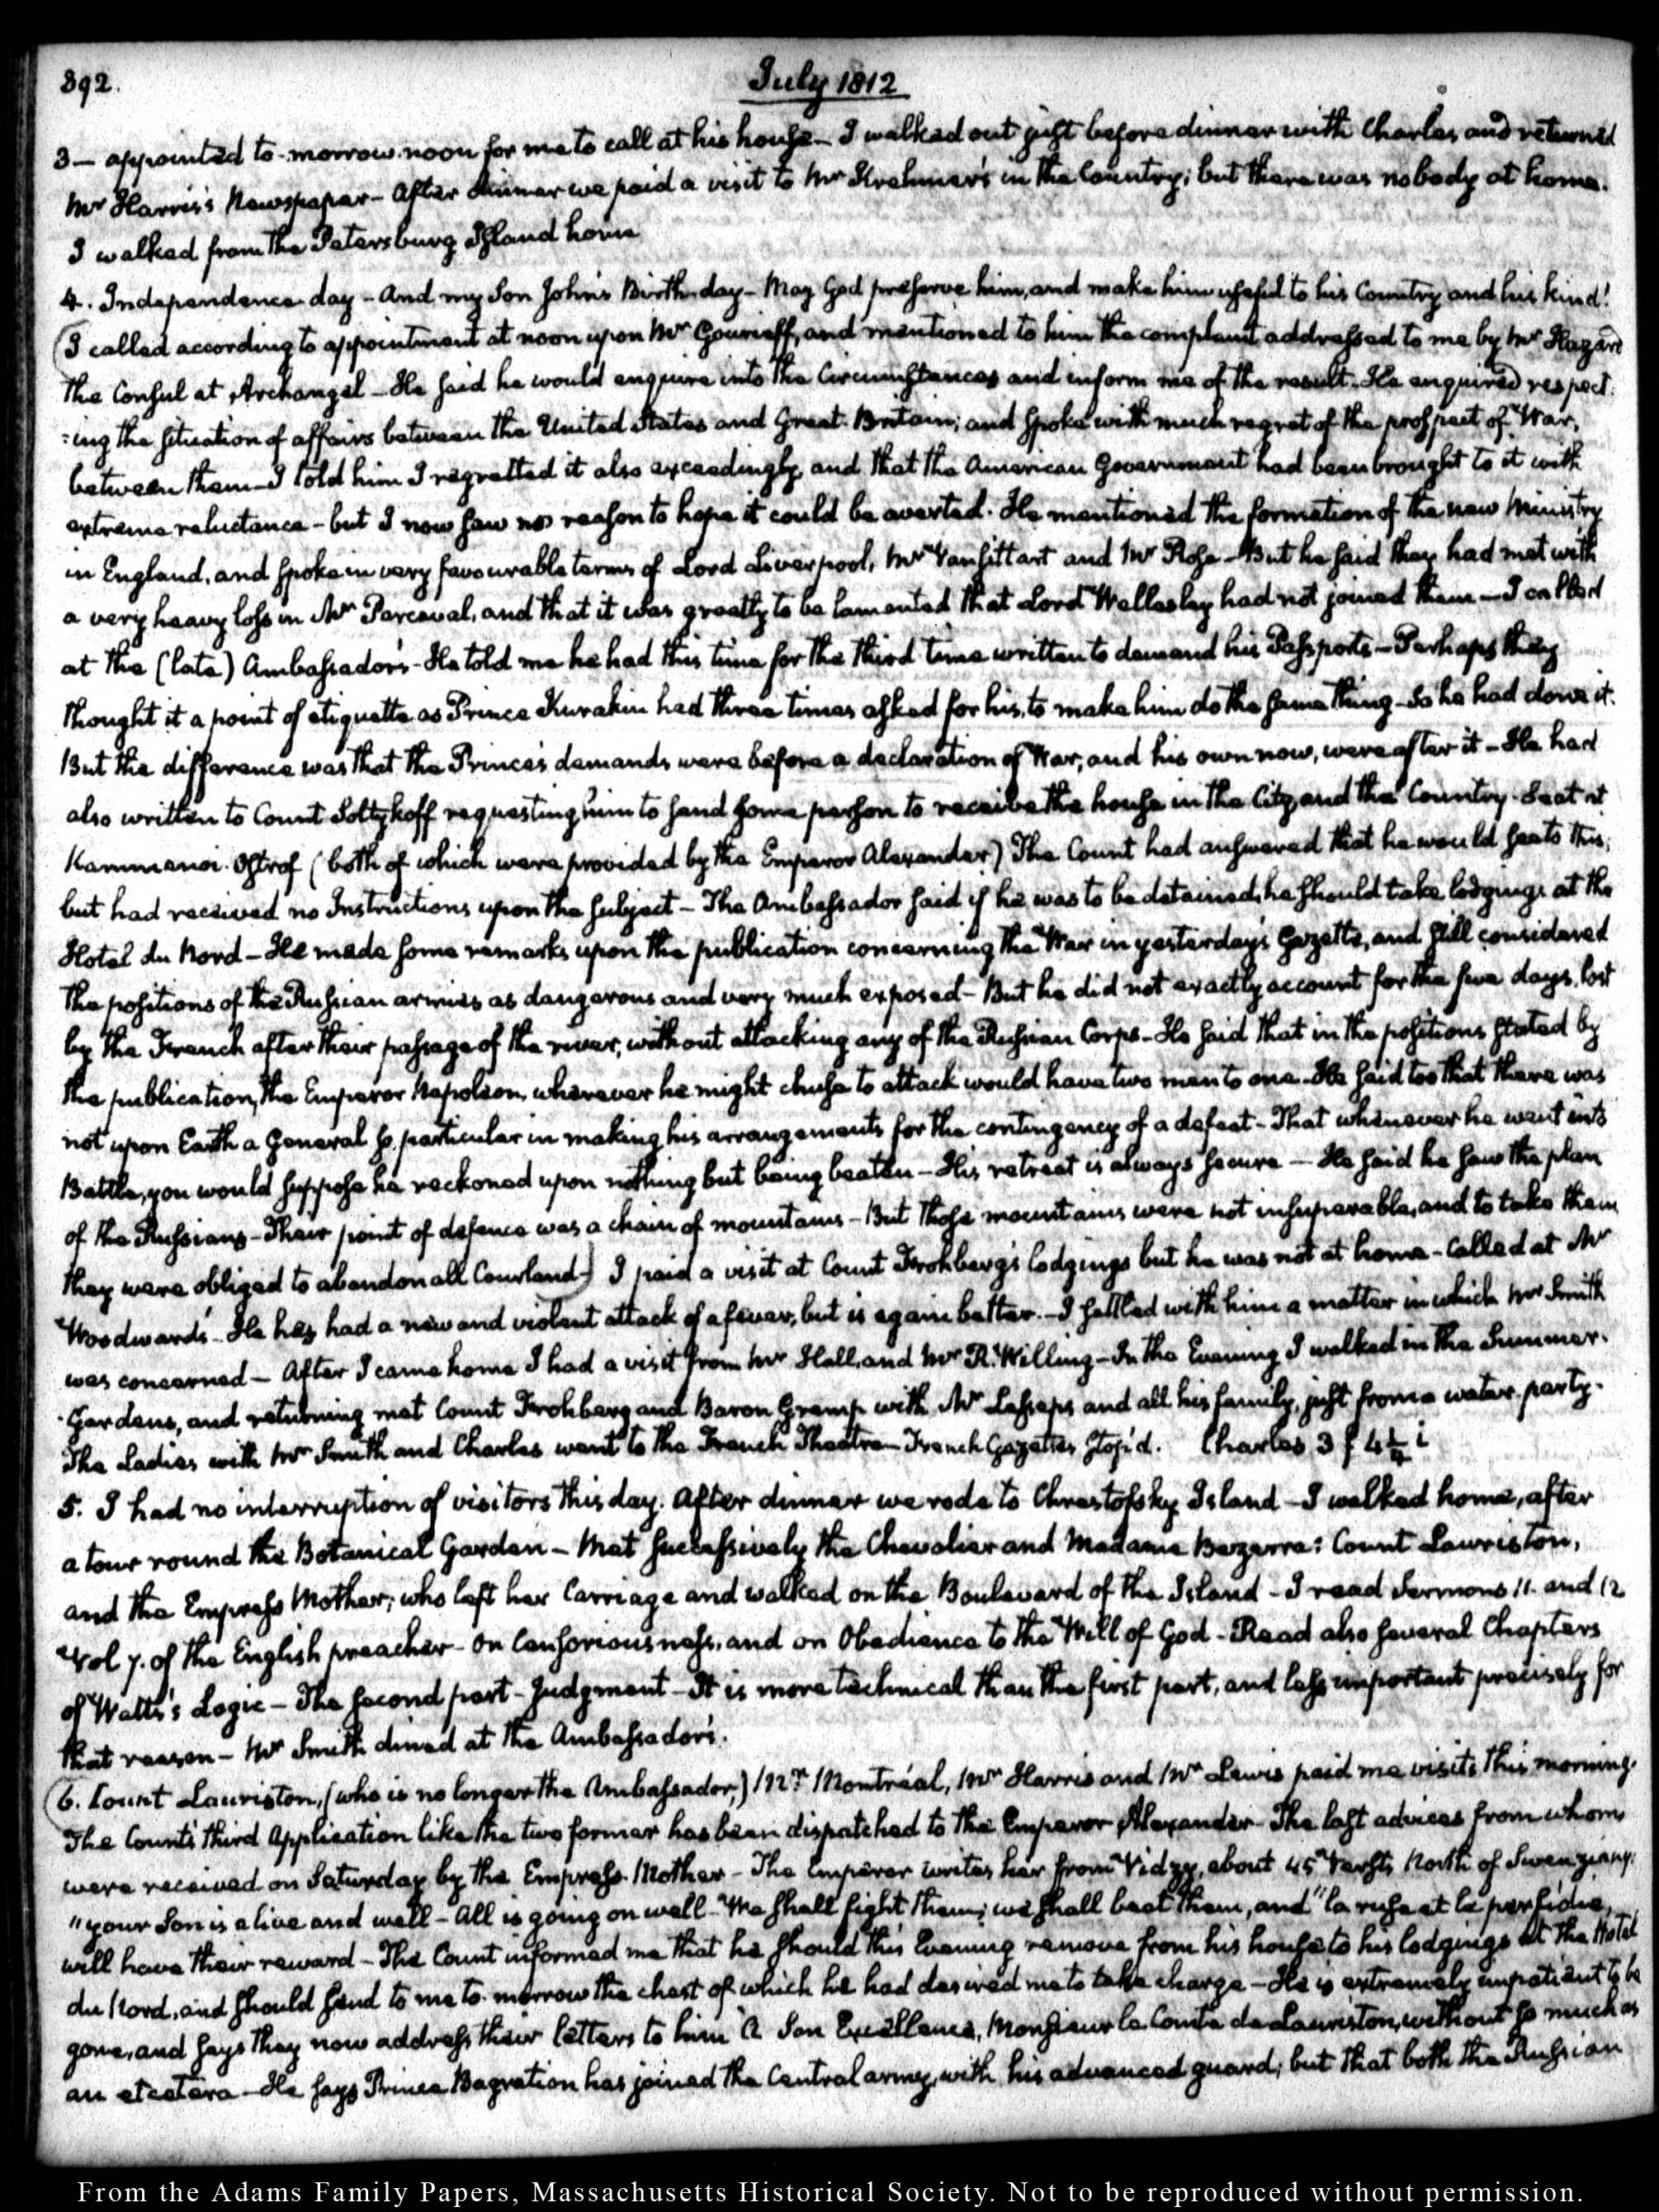 392.
July 1812
3 — appointed to-morrow noon for me to call at his house — I walked out just before dinner with Charles and returned
Mr Harris's Newspaper — After dinner we paid a visit to Mr Krehmer's in the Country; but there was nobody at home.
I walked from the Petersburg Island home
4. Independence day — And my Son John's Birth-day — May God preserve him, and make him useful to his Country and his kind!
I called according to appointment at noon upon Mr Gourieff, and mentioned to him the complaint addressed to me by Mr Hazard
the Consul at Archangel — He said he would enquire into the Circumstances and inform me of the result. He enquired respect:
:ing the situation of affairs between the United States and Great-Britain; and spoke with much regret of the prospect of War,
between them — I told him I regretted it also exceedingly, and that the American Government had been brought to it with
extreme reluctance — but I now saw no reason to hope it could be averted. He mentioned the formation of the new Ministry
in England, and spoke in very favourable terms of Lord Liverpool, Mr Vansittart and Mr Rose — But he said they had met with
a very heavy loss in Mr Perceval, and that it was greatly to be lamented that Lord Wellesley had not joined them — I called
at the (late) Ambassador's — He told me he had this time for the third time written to demand his Passports — Perhaps they
thought it a point of etiquette as Prince Kurakin had three times asked for his, to make him do the same thing — So he had done it.
But the difference was that the Prince's demands were before a declaration of War, and his own now, were after it — He had
also written to Count Soltykoff requesting him to send some person to receive the house in the City, and the Country-Seat at
Kammenoi-Ostrof (both of which were provided by the Emperor Alexander) The Count had answered that he would see to this;
but had received no Instructions upon the subject — The Ambassador said if he was to be detained, he should take lodgings at the
Hotel du Nord — He made some remarks upon the publication concerning the War in yesterday's Gazette, and still considered
the positions of the Russian armies as dangerous and very much exposed — But he did not exactly account for the five days, lost
by the French after their passage of the river, without attacking any of the Russian Corps — He said that in the positions stated by
the publication, the Emperor Napoleon, wherever he might chuse to attack would have two men to one. He said too that there was
not upon Earth a General so particular in making his arrangements for the contingency of a defeat — That whenever he went into
Battle, you would suppose he reckoned upon nothing but being beaten — His retreat is always secure — He said he saw the plan
of the Russians — Their point of defence was a chain of mountains — But those mountains were not insuperable, and to take them
they were obliged to abandon all Courland —) I paid a visit at Count Frohberg's lodgings but he was not at home — Called at Mr
Woodward's — He has had a new and violent attack of a fever, but is again better. — I settled with him a matter in which Mr Smith
was concerned — After I came home I had a visit from Mr Hall, and Mr R. Willing — In the Evening I walked in the Summer-
-Gardens, and returning met Count Frohberg and Baron Gremp with Mr Lesseps and all his family, just from a water-party.
The Ladies with Mr Smith and Charles went to the French Theatre — French Gazettes stop'd. Charles 3 f 4½ i
5. I had no interruption of visitors this day. After dinner we rode to Chrestofsky Island — I walked home, after
a tour round the Botanical Garden — Met successively the Chevalier and Madame Bezerra: Count Lauriston,
and the Empress Mother; who left her Carriage and walked on the Boulevard of the Island — I read Sermons 11. and 12
Vol 7. of the English preacher — On Censoriousness, and on Obedience to the Will of God — Read also several Chapters
of Watts's Logic — The second part — Judgment — It is more technical than the first part, and less important precisely for
that reason — Mr Smith dined at the Ambassador's.
6. Count Lauriston, (who is no longer the Ambassador,) Mr Montréal, Mr Harris and Mr Lewis paid me visits this morning.
The Count's third Application like the two former has been dispatched to the Emperor Alexander — The last advices from whom
were received on Saturday by the Empress-Mother — The Emperor writes her from Vidzy, about 45 Versts North of Swenziany:
"your Son is alive and well — All is going on well — We shall fight them; we shall beat them, and "la ruse et la perfidie,
will have their reward — The Count informed me that he should this Evening remove from his house to his lodgings at the Hotel
du Nord, and should send to me to-morrow the chest of which he had desired me to take charge — He is extremely impatient to be
gone, and says they now address their letters to him A Son Excellence, Monsieur le Comte de Lauriston, without so much as
an etcetera — He says Prince Bagration has joined the Central army, with his advanced guard; but that both the Russian
From the Adams Family Papers, Massachusetts Historical Society. Not to be reproduced without permission.